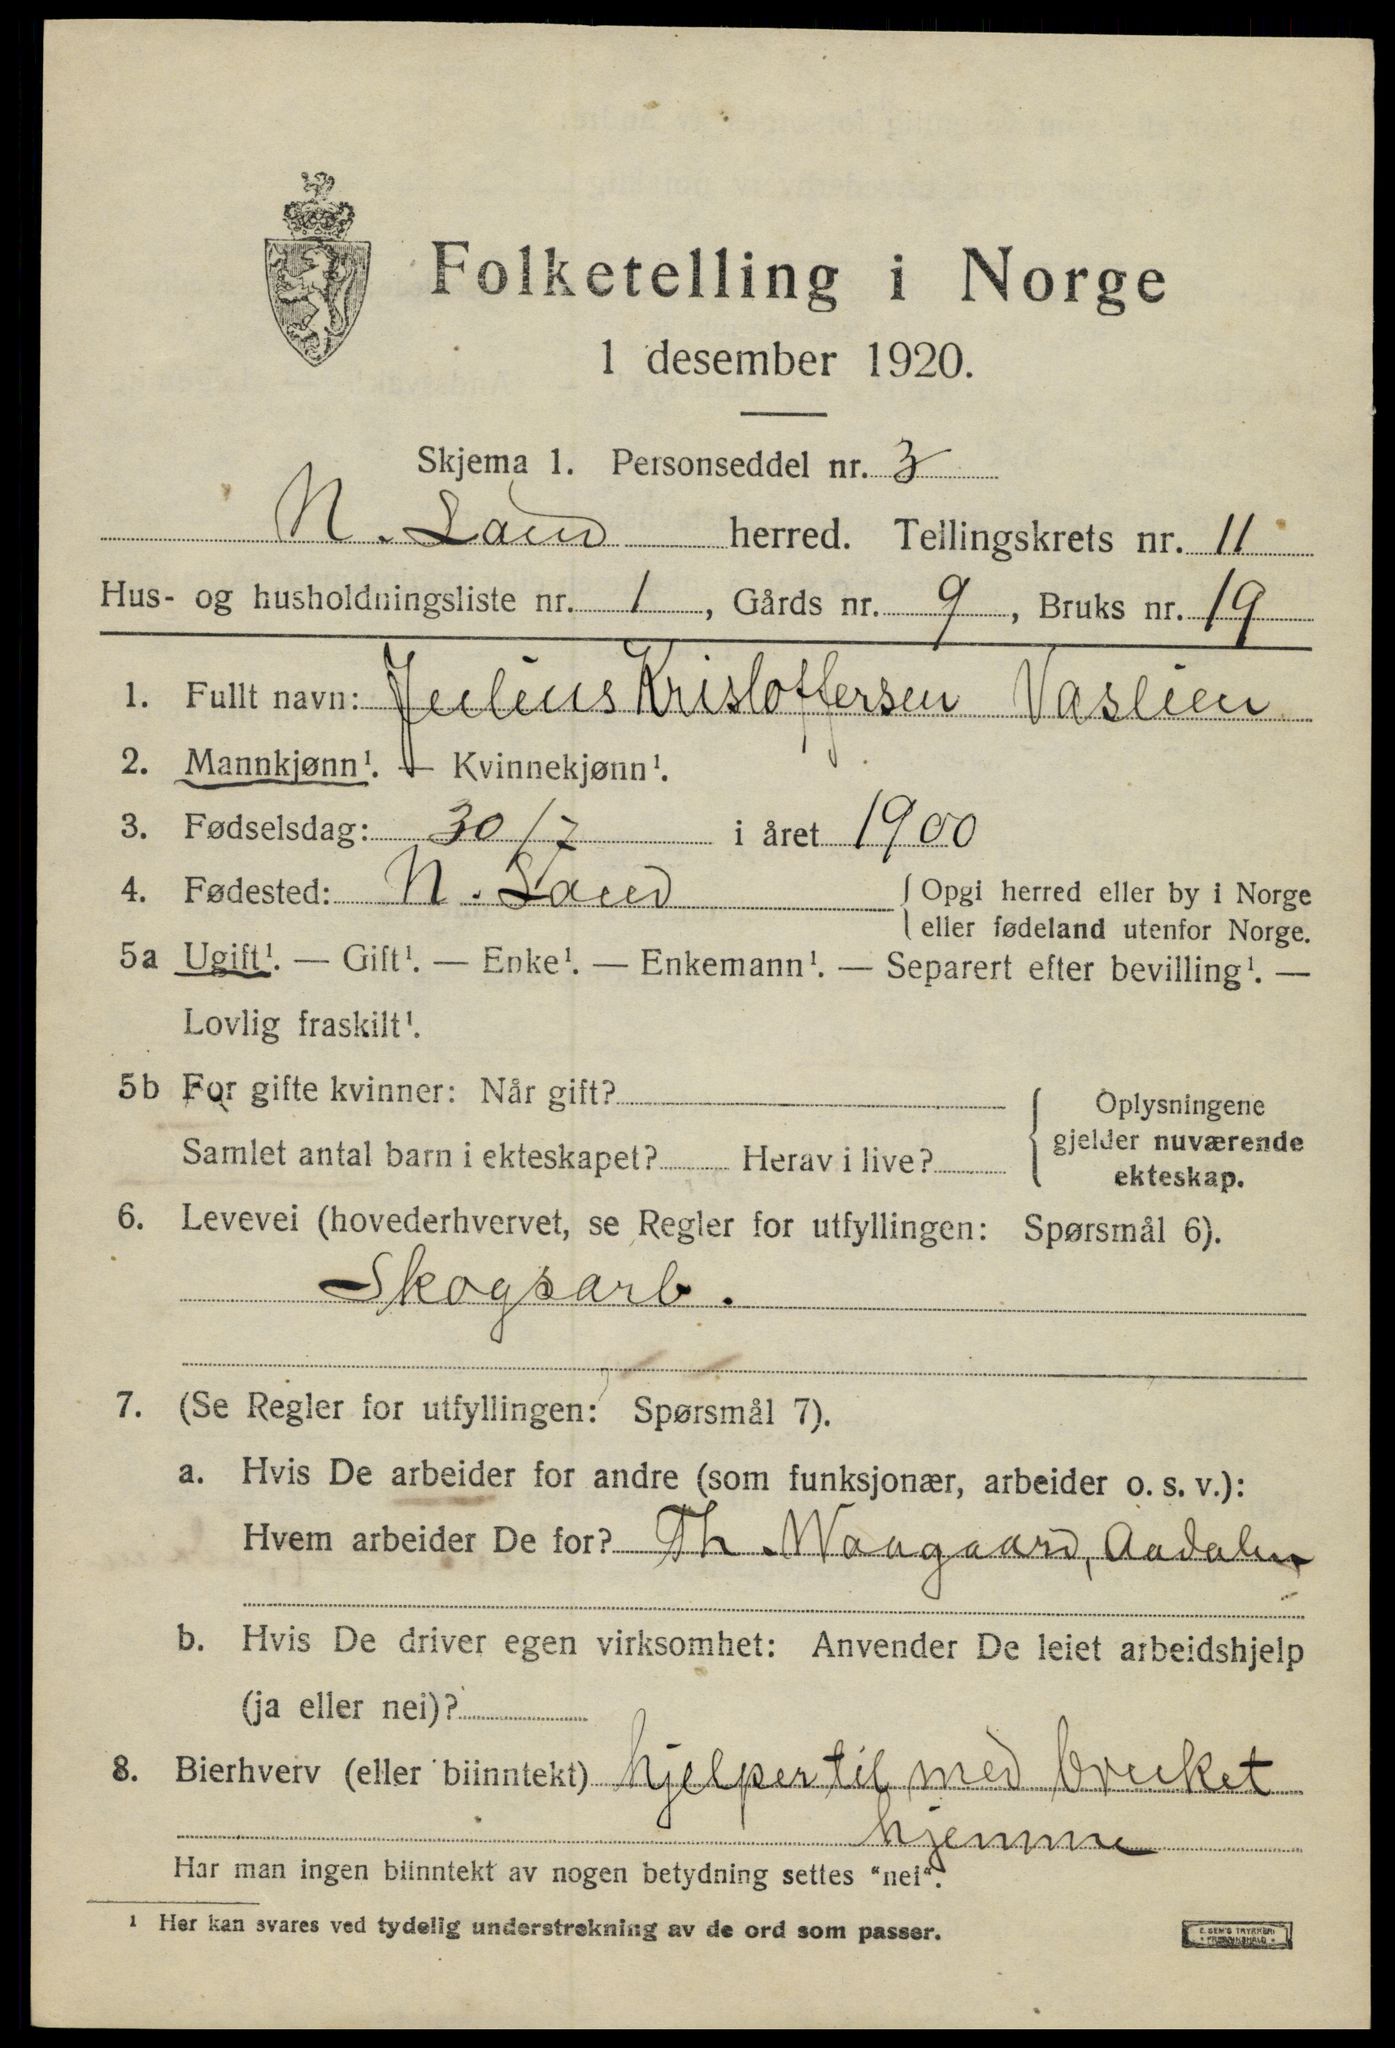 Folketelling i Norge
1 desember 1920.
Skjema 1. Personseddel nr. 3
N. Land herred. Tellingskrets nr. 11
Hus- og husholdningsliste nr. 1, Gårds nr. 9, Bruks nr. 19
1. Fullt navn: Julius Kristoffersen Vaslien
2. Mannkjønn¹. — Kvinnekjønn¹.
3. Fødselsdag: 30/7 i året 1900
4. Fødested: N. Land { Opgi herred eller by i Norge
eller fødeland utenfor Norge.
5a Ugift¹. — Gift¹. — Enke¹. — Enkemann¹. — Separert efter bevilling¹. —
Lovlig fraskilt¹.
5b For gifte kvinner: Når gift?
Samlet antal barn i ekteskapet? Herav i live?
Oplysningene
gjelder nuværende
ekteskap.
6. Levevei (hovederhvervet, se Regler for utfyllingen: Spørsmål 6).
Skogsarb.
7. (Se Regler for utfyllingen: Spørsmål 7).
a. Hvis De arbeider for andre (som funksjonær, arbeider o. s. v.):
Hvem arbeider De for? Th. Waagaard, Aadalen
b. Hvis De driver egen virksomhet: Anvender De leiet arbeidshjelp
(ja eller nei)?
8. Bierhverv (eller biinntekt) hjelper til med bruket
hjemme
Har man ingen biinntekt av nogen betydning settes "nei".
1 Her kan svares ved tydelig understrekning av de ord som passer.